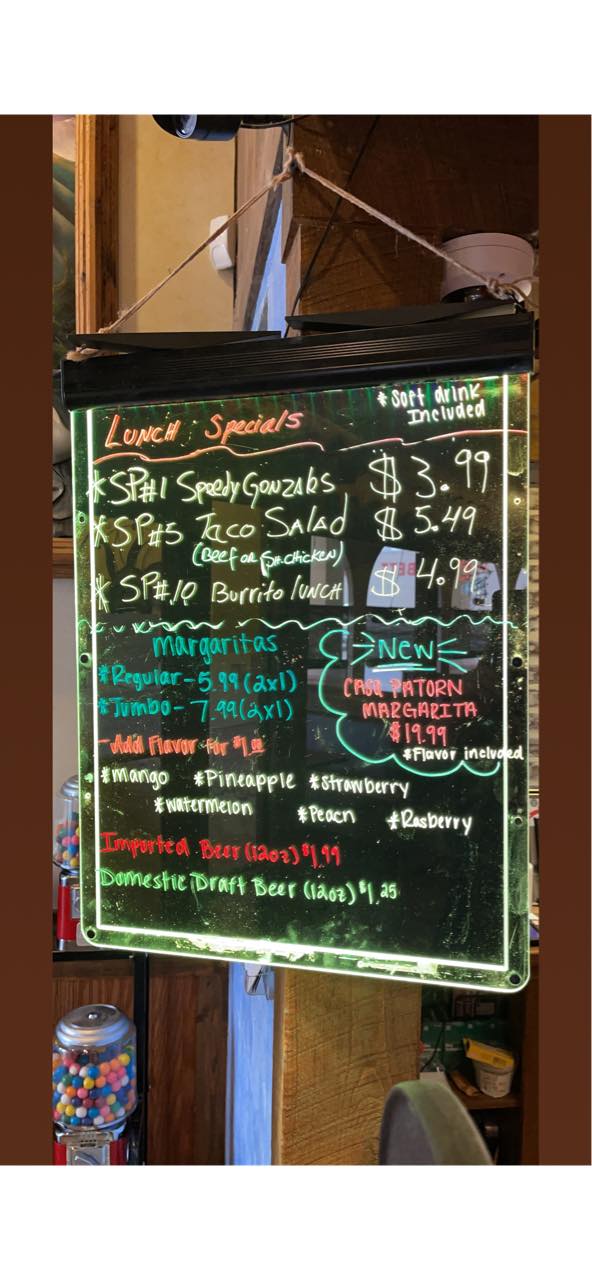 *Soft drink
Included
Lunch Specials
*SP#1 Speedy Gonzales $3.99
*SP#5 Taco Salad $5.49
(Beef or SH.CHICKEN)
* SP#10 Burrito lunch $4.99
margaritas
*Regular-5.99(2x1)
*Jumbo-7.99(2x1)
-Add Flavor for $1.00
New
CASA PATORN
MARGARITA
$19.99
*Flavor included
*Mango *Pineapple *Strawberry
*Watermelon *Peach *Rasberry
Imported Beer(12oz)$1.99
Domestic Draft Beer(12oz)$1.25